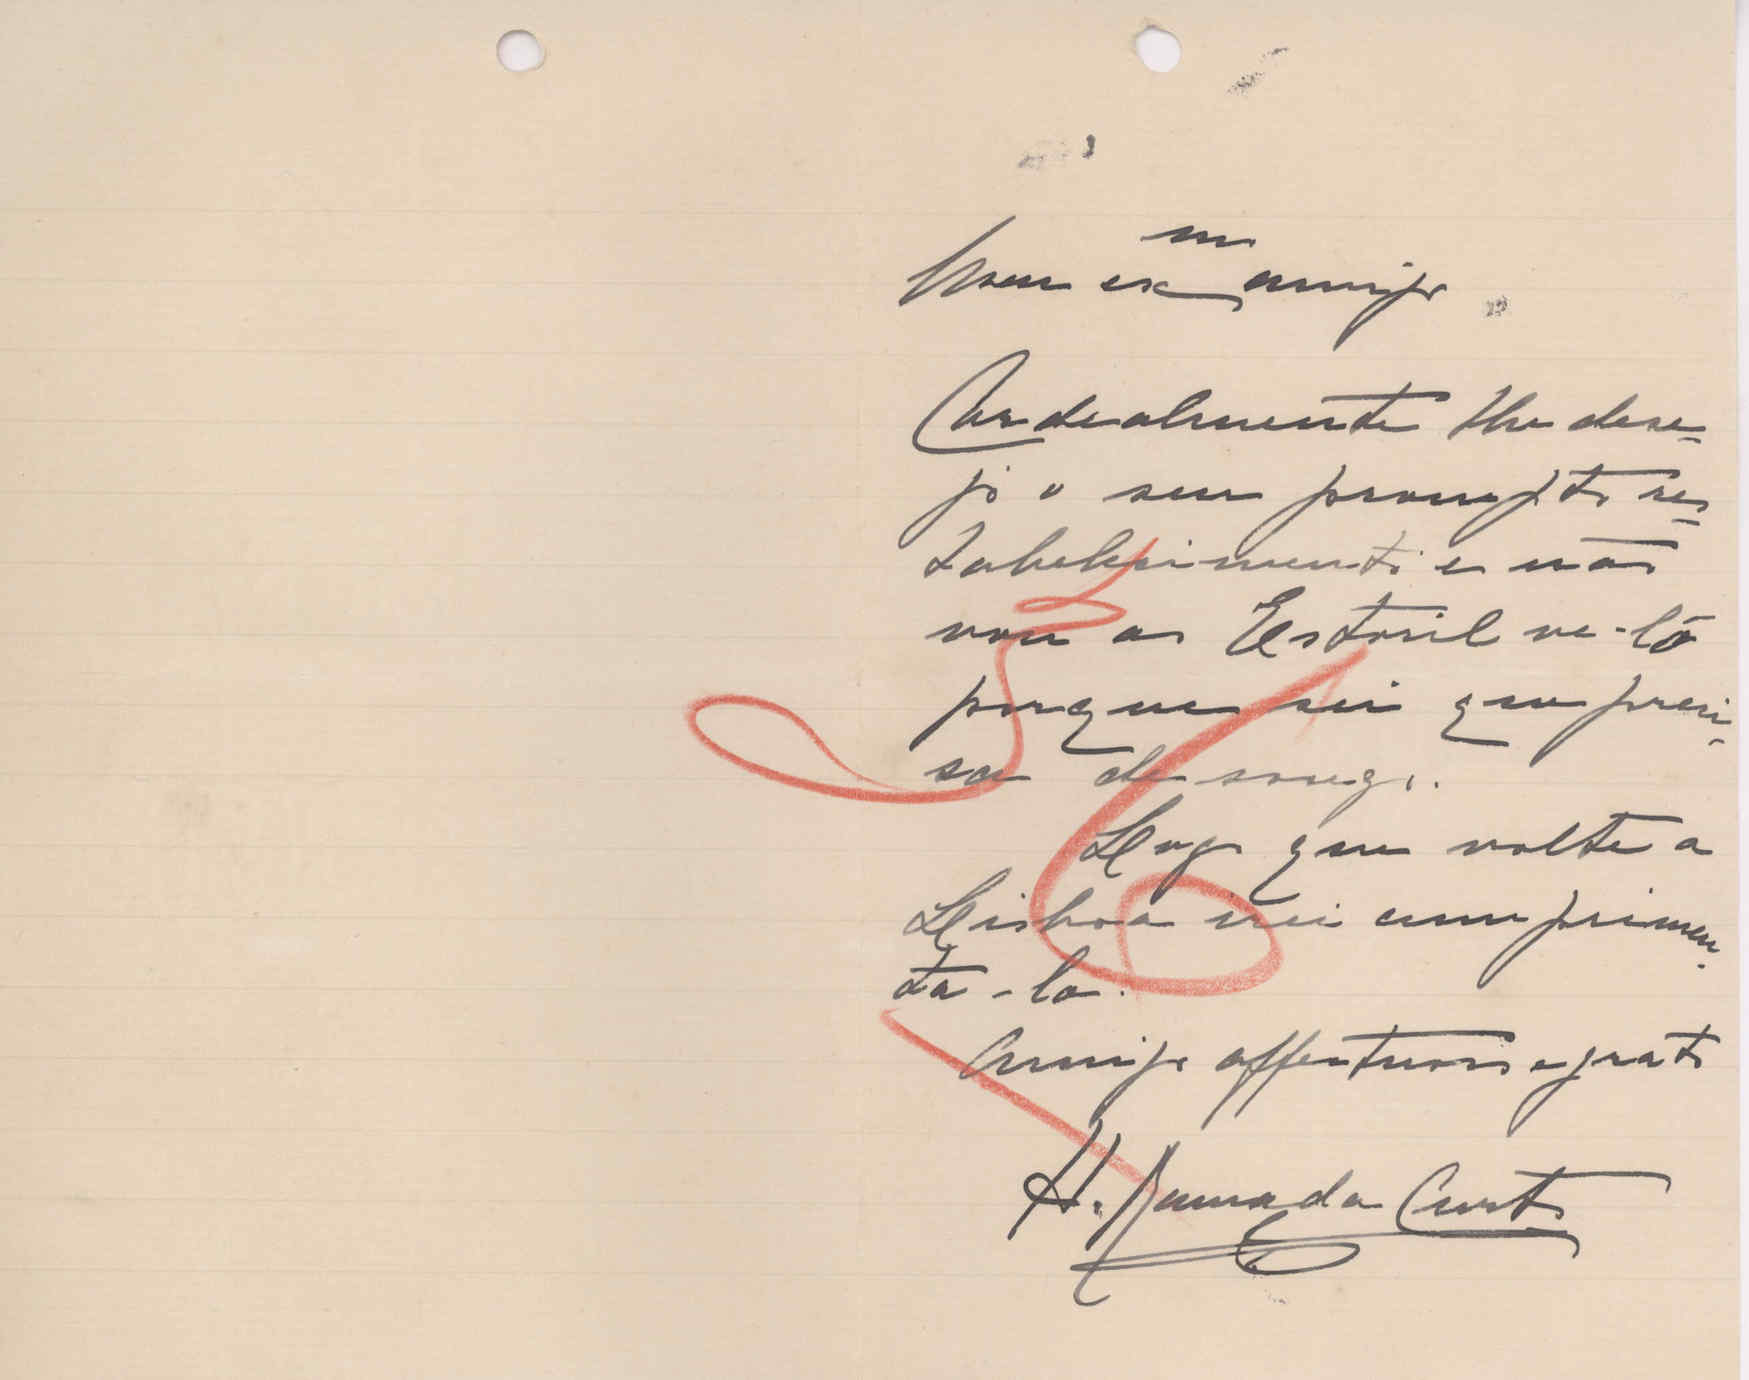 Meu ex.mo amigo
Cordealmente lhe dese-
jo o seu prompto res-
tabelecimento e não
vou ao Estoril ve-lo
porque sei que preci-
sa de socego.
Logo que volte a
Lisboa irei cumprimen-
ta-lo.
Amigo affectuoso e grato
H. Ramada Curto